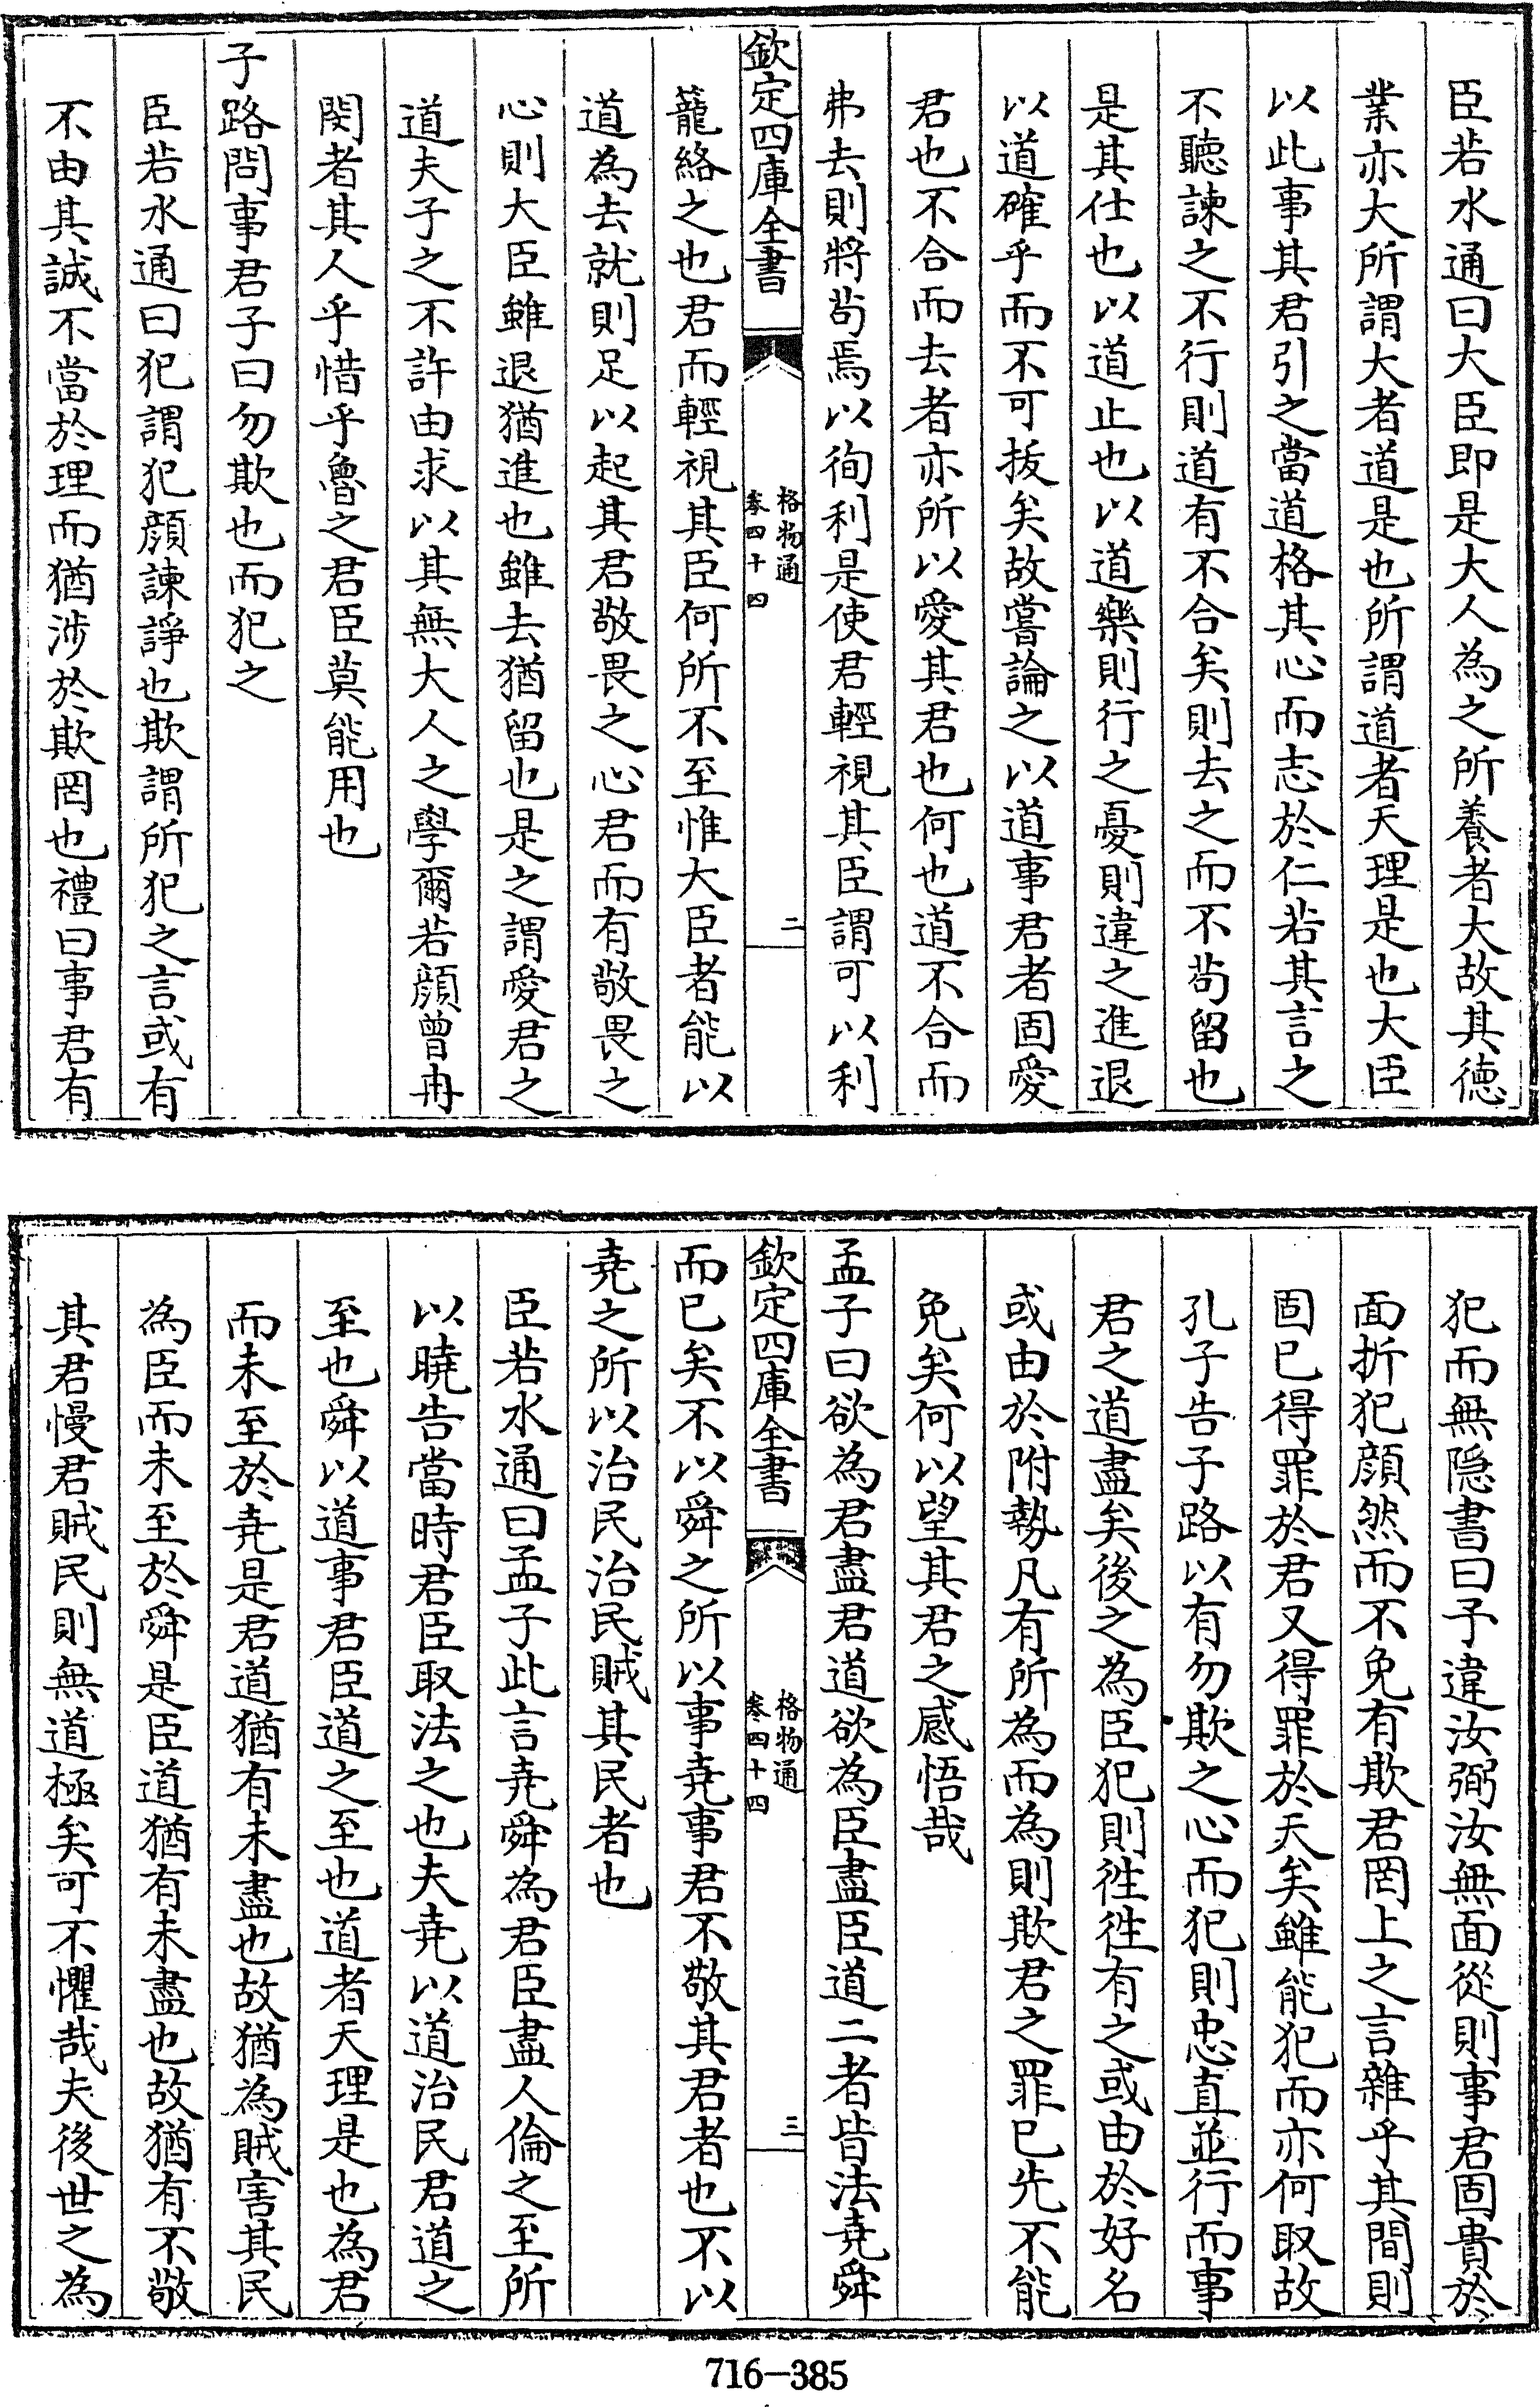 臣若水通曰大臣即是大人為之所養者大故其徳
業亦大所謂大者道是也所謂道者天理是也大臣
以此事其君引之當道格其心而志於仁若其言之
不聽諫之不行則道有不合矣則去之而不茍留也
是其仕也以道止也以道樂則行之憂則違之進退
以道確乎而不可拔矣故嘗論之以道事君者固愛
君也不合而去者亦所以愛其君也何也道不合而
弗去則將茍焉以徇利是使君輕視其臣謂可以利
欽定四庫全書
格物通
卷四十四
二
籠絡之也君而輕視其臣何所不至惟大臣者能以
道為去就則足以起其君敬畏之心君而有敬畏之
心則大臣雖退猶進也雖去猶留也是之謂愛君之
道夫子之不許由求以其無大人之學爾若顔曾冉
閔者其人乎惜乎魯之君臣莫能用也
子路問事君子曰勿欺也而犯之
臣若水通曰犯謂犯顔諫諍也欺謂所犯之言或有
不由其誠不當於理而猶涉於欺罔也禮曰事君有
犯而無隐書曰予違汝弼汝無面從則事君固貴於
面折犯顔然而不免有欺君罔上之言雜乎其間則
固已得罪於君又得罪於天矣雖能犯而亦何取故
孔子告子路以有勿欺之心而犯則忠直並行而事
君之道盡矣後之為臣犯則徃徃有之或由於好名
或由於附勢凡有所為而為則欺君之罪已先不能
免矣何以望其君之感悟哉
孟子曰欲為君盡君道欲為臣盡臣道二者皆法堯舜
欽定四庫全書
格物通
卷四十四
三
而已矣不以舜之所以事堯事君不敬其君者也不以
堯之所以治民治民賊其民者也
臣若水通曰孟子此言堯舜為君臣盡人倫之至所
以曉告當時君臣取法之也夫堯以道治民君道之
至也舜以道事君臣道之至也道者天理是也為君
而未至於堯是君道猶有未盡也故猶為賊害其民
為臣而未至於舜是臣道猶有未盡也故猶有不敬
其君慢君賊民則無道極矣可不懼哉夫後世之為
716-385